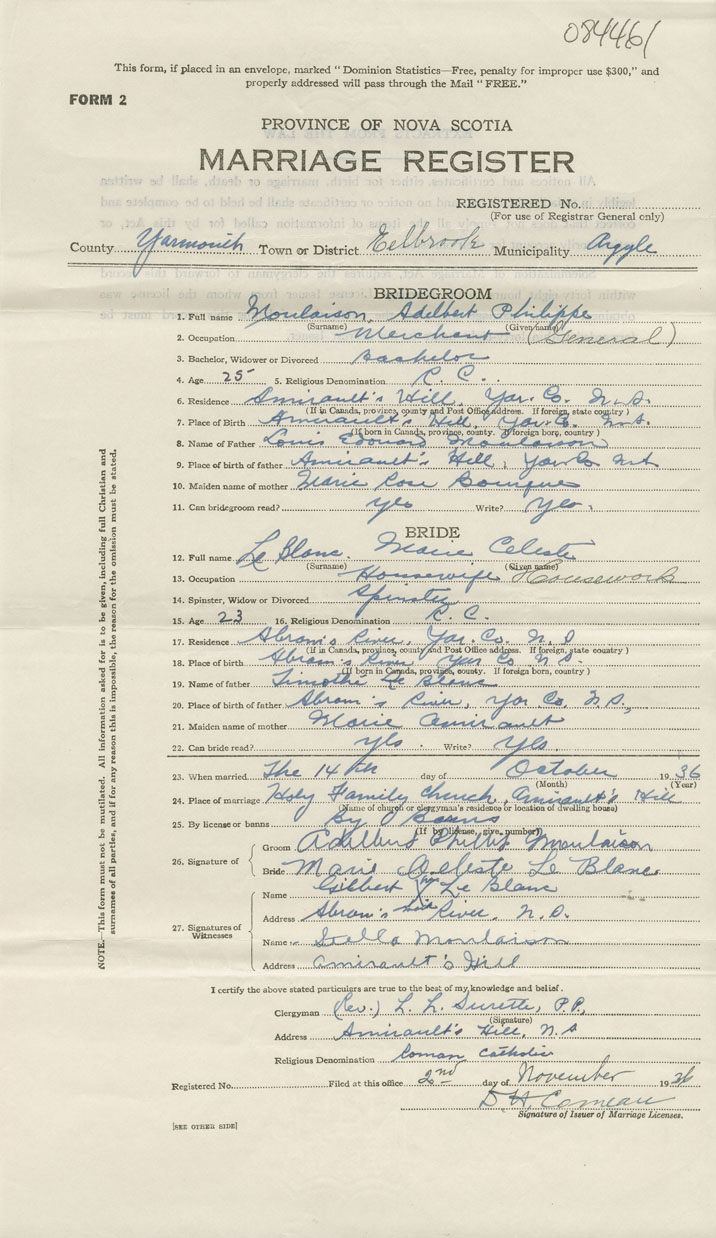 084461
This form, if placed in an envelope, marked " Dominion Statistics—Free, penalty for improper use $300," and
properly addressed will pass through the Mail " FREE."
FORM 2
PROVINCE OF NOVA SCOTIA
MARRIAGE REGISTER
REGISTERED No.
(For use of Registrar General only)
County Yarmouth Town or District Eelbrook Municipality Argyle
BRIDEGROOM
1. Full name Moulaison, Adelbert Philippe
(Surname) (Given name)
2. Occupation Merchant (General)
3. Bachelor, Widower or Divorced Bachelor
4. Age 25 5. Religious Denomination R. C.
6. Residence Amirault's Hill, Yar. Co. N.S.
(If in Canada, province, county and Post Office address. If foreign, state country)
7. Place of Birth Amirault's Hill, Yar. Co. N.S.
(If born in Canada, province, county. If foreign born, country)
8. Name of Father Louis Edouard Moulaison
9. Place of birth of father Amirault's Hill, Yar Co N.S.
10. Maiden name of mother Marie Rose Bourque
11. Can bridegroom read? yes Write? Yes
BRIDE
12. Full name Le Blanc. Marie Celeste
(Surname) (Given name)
13. Occupation Housewife Housework
14. Spinster, Widow or Divorced Spinster
15. Age 23 16. Religious Denomination R. C.
17. Residence Abram's River, Yar. Co. N.S
(If in Canada, province, county and Post Office address. If foreign, state country)
18. Place of birth Abram's River Yar Co N.S.
(If born in Canada, province, county. If foreign born, country)
19. Name of father Timothe Le Blanc
20. Place of birth of father Abram's River, Yar Co, N.S.,
21. Maiden name of mother Marie Amirault
22. Can bride read? yes. Write? Yes.
23. When married The 14th day of October 1936
(Month) (Year)
24. Place of marriage Holy Family Church, Amirault's Hill
(Name of church or clergyman's residence or location of dwelling house)
25. By license or banns By Banns
(If by license, give number)
26. Signature of
Groom Adelbert Philip Moulaison
Bride Marie Celeste Le Blanc
27. Signatures of Witnesses
Name Gilbert Le Blanc
Address Abram's River, N.S.
Name Stella Moulaison
Address Amirault's Hill
I certify the above stated particulars are true to the best of my knowledge and belief.
Clergyman (Rev.) L. L. Surette, P.P.,
(Signature)
Address Amirault's Hill, N.S
Religious Denomination Roman Catholic
Registered No. Filed at this office 2nd day of November 1936
D. H. Comeau
Signature of Issuer of Marriage Licenses.
[SEE OTHER SIDE]
NOTE.—This form must not be mutilated. All information asked for is to be given, including full Christian and
surnames of all parties, and if for any reason this is impossible, the reason for the omission must be stated.